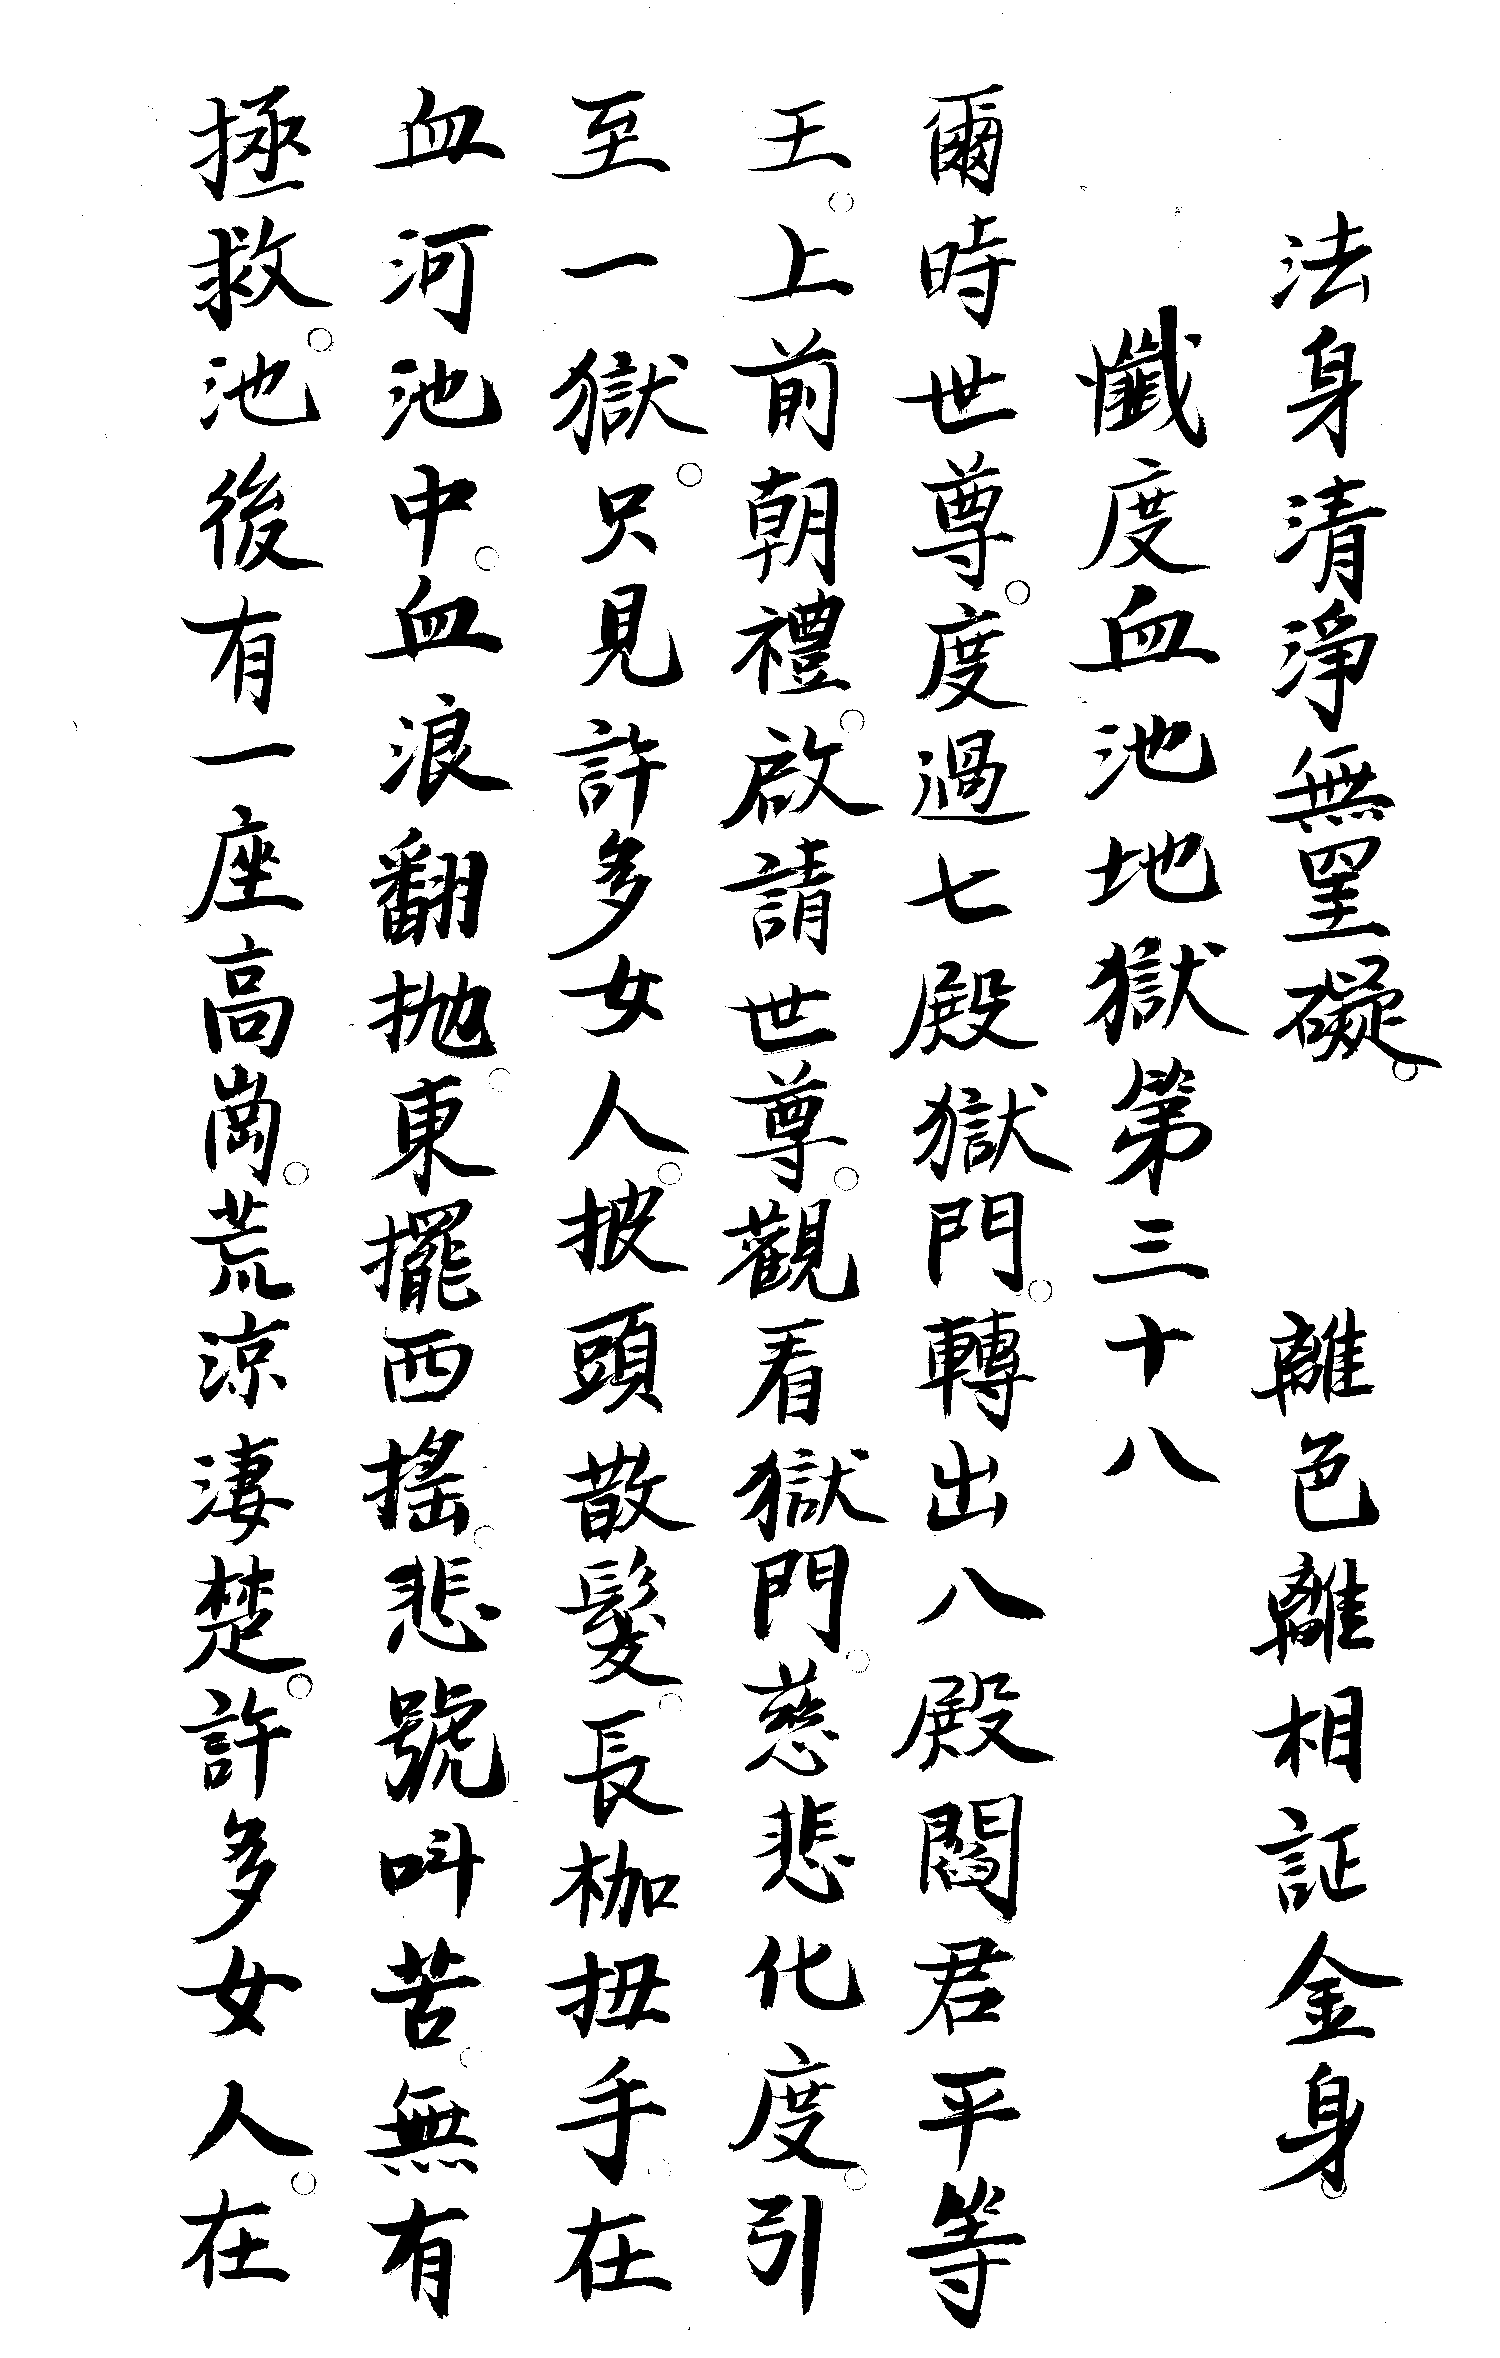 法身清淨無罣礙。　離色離相証金身。
懺度血池地獄第三十八
爾時世尊。度過七殿獄門。轉出八殿閻君平等
王。上前朝禮。啟請世尊。觀看獄門。慈悲化度。引
至一獄。只見許多女人。披頭散髮。長枷扭手。在
血河池中。血浪翻拋。東擺西搖。悲號叫苦。無有
拯救。池後有一座高崗。荒涼淒楚。許多女人。在